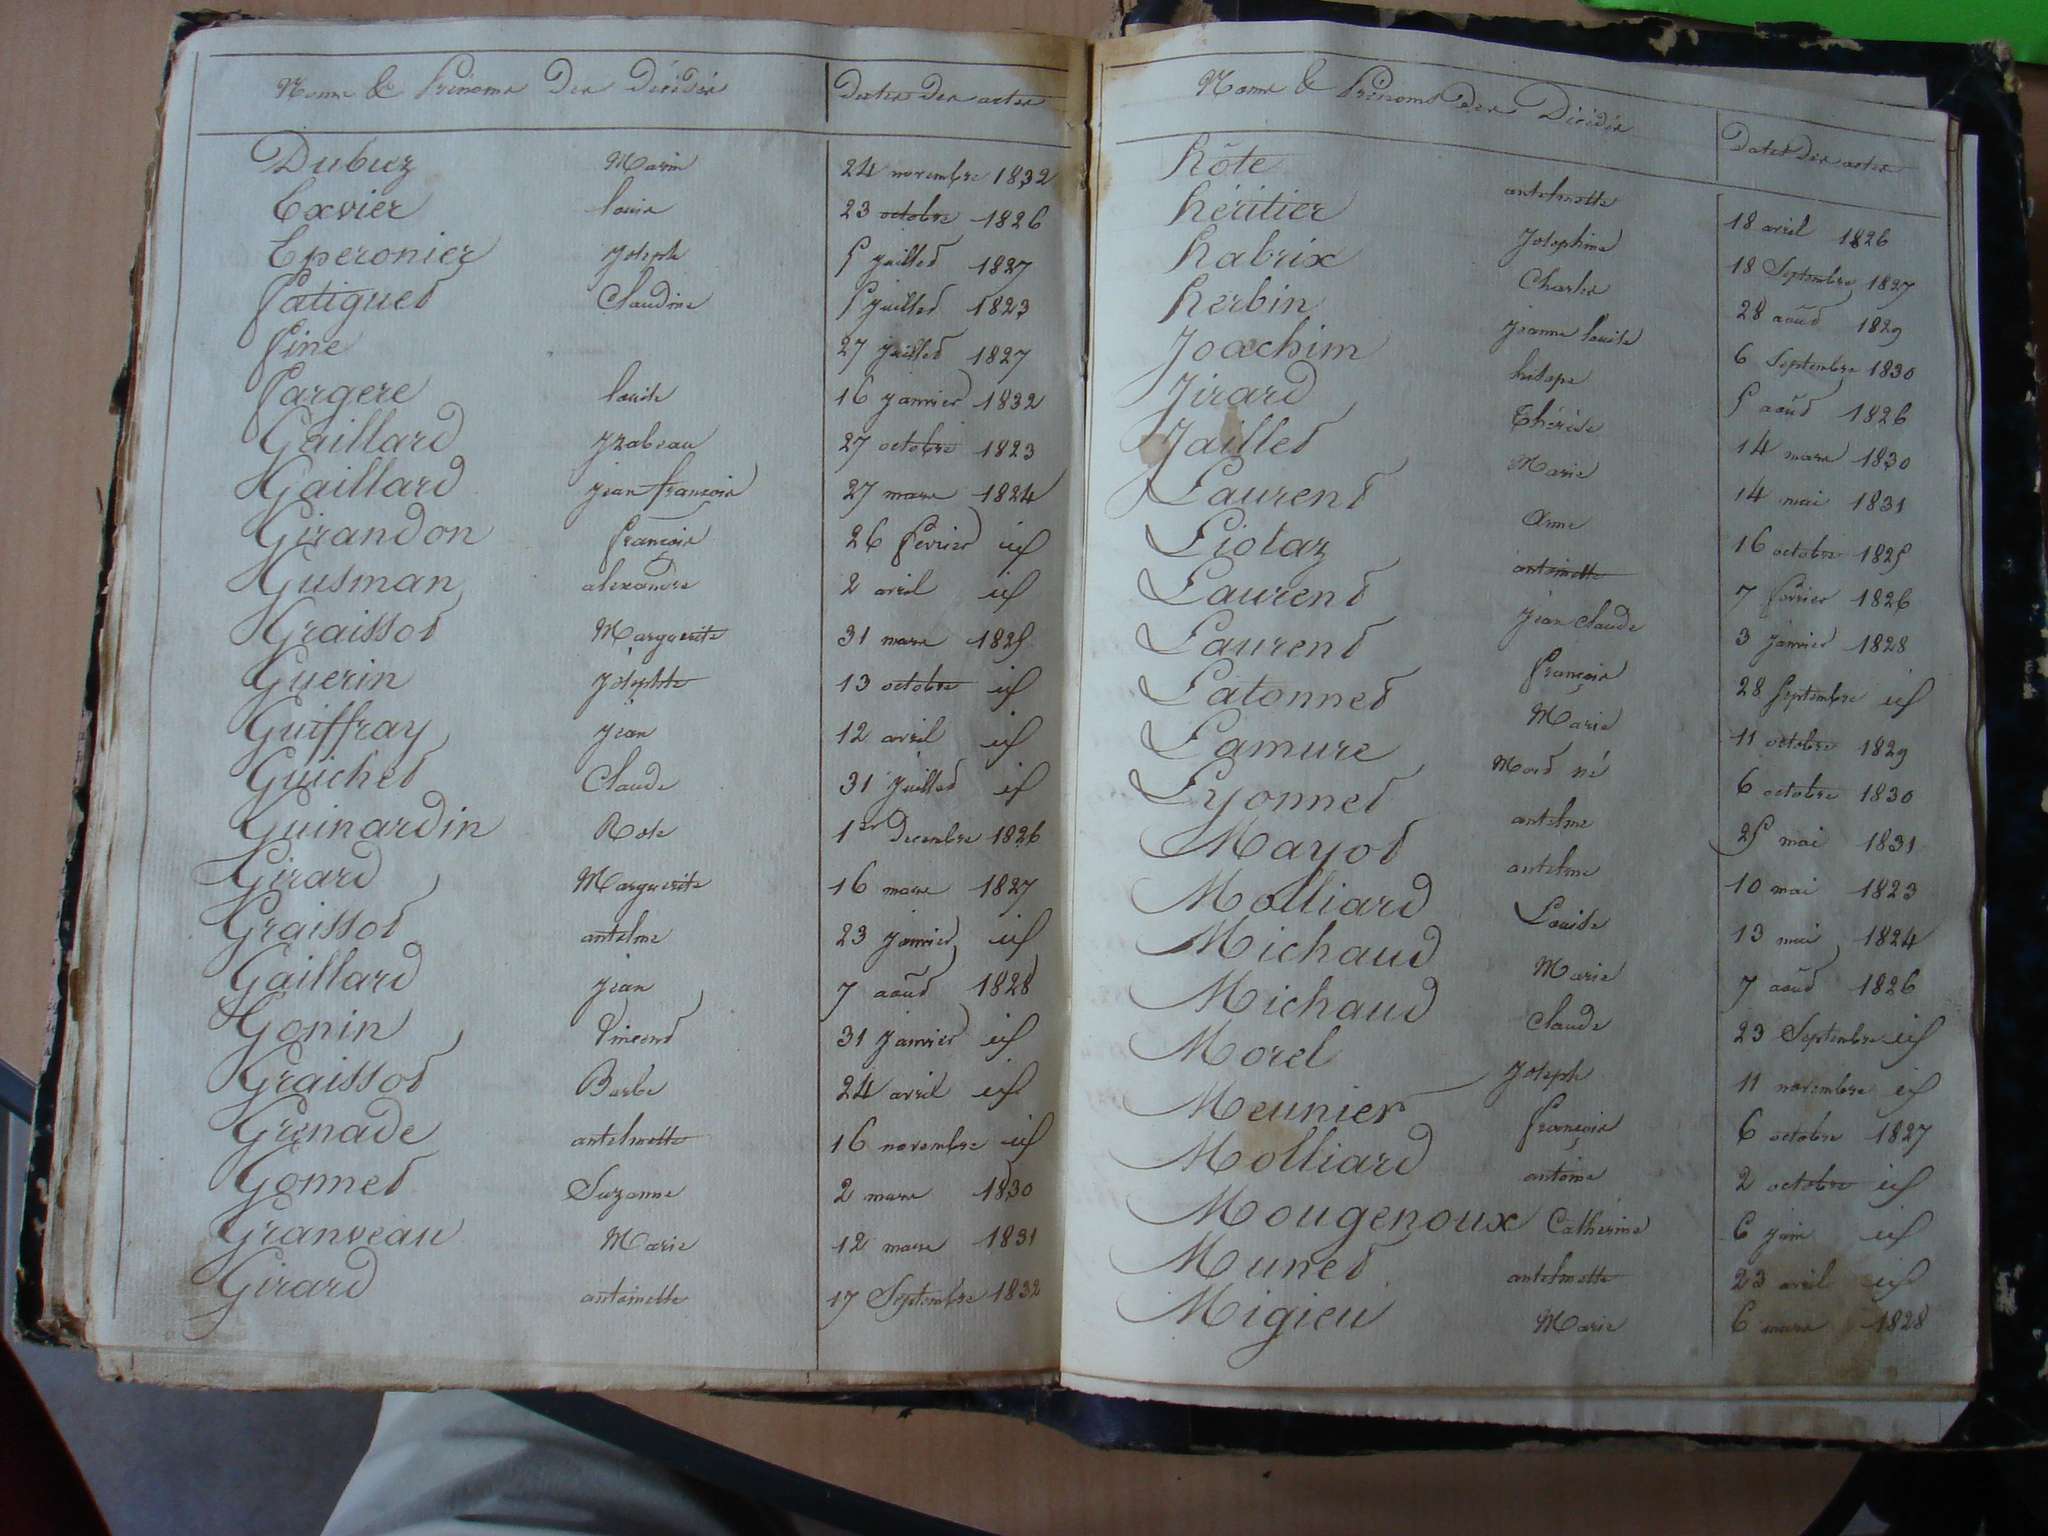 Noms & Prénoms des Décédés Dates des actes
Dubuz Marin 24 novembre 1832
Exvier louis 23 octobre 1826
Eperonier joseph 5 juillet 1827
Fatiguet Claudine 5 juillet 1823
Fine 27 juillet 1827
Fargere louise 16 janvier 1832
Gaillard yzabeau 27 octobre 1823
Gaillard jean françois 27 mars 1824
Girandon françois 26 février id
Gusman alexandre 2 avril id
Graissot Marguerite 31 mars 1825
Guerin josephte 13 octobre id
Guiffray jean 12 avril id
Guichet Claude 31 juillet id
Guinardin Rose 1er Decembre 1826
Girard Marguerite 16 mars 1827
Graissot antelme 23 janvier id
Gaillard jean 7 août 1828
Gonin Vincent 31 janvier id
Graissot Barbe 24 avril id
Grenade antelmette 16 novembre id
Gonnet Suzanne 2 mars 1830
Granveau Marie 12 mars 1831
Girard antoinette 17 Septembre 1832
Noms & Prénoms des Décédés Dates des actes
hôte antelmette 18 avril 1826
héritier Josephine 18 Septembre 1827
habrix Charles 28 août 1829
herbin jeanne louise 6 Septembre 1830
Joachim 5 août 1826
Jirard Thérèse 14 mars 1830
Jaillet Marie 14 mai 1831
Laurent Anne 16 octobre 1825
Liotaz antoinette 7 février 1826
Laurent jean claude 3 janvier 1828
Laurent françois 28 septembre id
Latonnet Marie 11 octobre 1829
Lamure Mort né 6 octobre 1830
Lyonnet antelme 25 mai 1831
Mayot antelme 10 mai 1823
Molliard Louise 13 mai 1824
Michaud Marie 7 août 1826
Michaud claude 23 Septembre id
Morel Joseph 11 novembre id
Meunier françois 6 octobre 1827
Molliard antoine 2 octobre id
Mougenoux Catherine 6 juin id
Munet antelmette 23 avril id
Migieu Marie 6 mars 1828